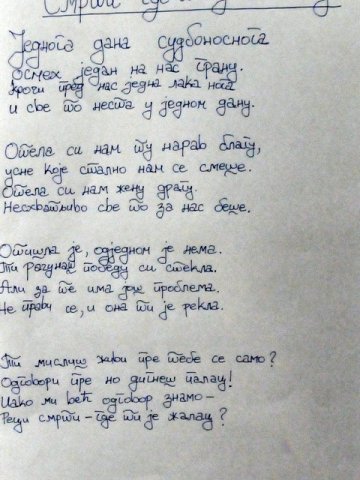 Смрти где
Једнога дана судбоноснога
осмех један на нас грану.
Крочи пред нас једна лака нога
и све то неста у једном дану.
Отела си нам ту нарав благу,
усне које стално нам се смеше.
Отела си нам жену драгу.
Несхватљиво све то за нас беше.
Отишла је, одједном је нема.
Ти рачунаш победу си стекла.
Али за те има још проблема.
Не прави се, и она ти је рекла.
Ти мислиш живи пре тебе се само?
Одговори пре но дигнеш палац!
Иако ми већ одговор знамо –
Реци смрти – где ти је жалац?